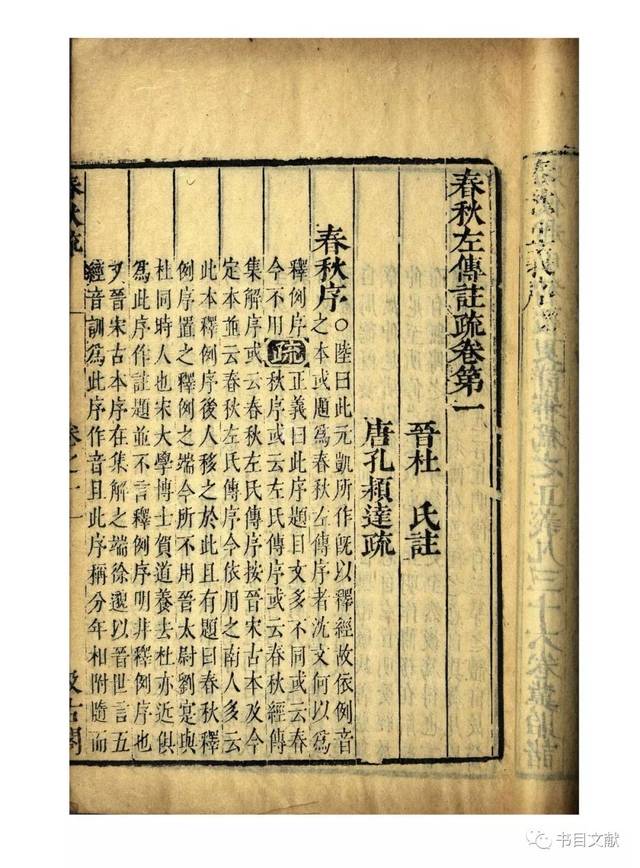 春秋左傳註疏卷第一
晉杜 氏註
唐孔穎達疏
春秋序○陸曰此元凱所作旣以釋經故依例音
之本或題爲春秋左傳序者沈文何以爲
釋例序
今不用
疏
正義曰此序題目文多不同或云春
秋序或云左氏傳序或云春秋經傳
集解序或云春秋左氏傳序按晉宋古本及今
定本並云春秋左氏傳序今依用之南人多云
此本釋例序後人移之於此且有題曰春秋釋
例序置之釋例之端今所不用晉太尉劉寔與
杜同時人也宋大學博士賀道養去杜亦近俱
爲此序作註題並不言釋例序明非釋例序也
又晉宋古本序在集解之端徐邈以晉世言五
經音訓爲此序作音且此序稱分年相附隨而
春秋疏
卷之一
汲古閣
书目文献